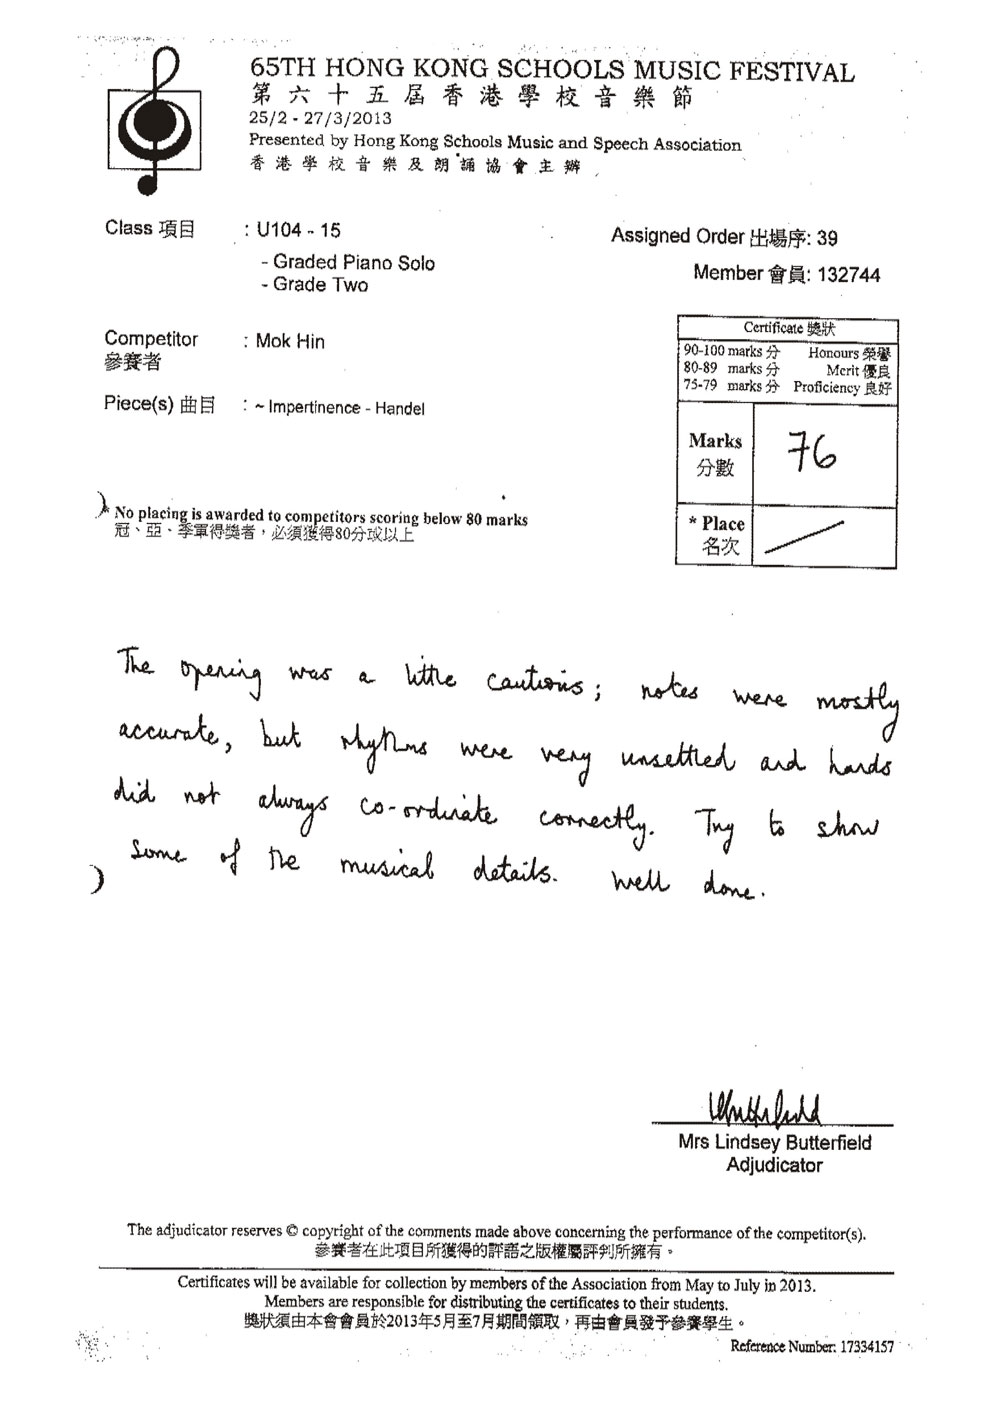 65TH HONG KONG SCHOOLS MUSIC FESTIVAL
第六十五屆香港學校音樂節
25/2 - 27/3/2013
Presented by Hong Kong Schools Music and Speech Association
香港學校音樂及朗誦協會主辦
Class 項目 : U104 - 15
- Graded Piano Solo
- Grade Two
Assigned Order 出場序: 39
Member 會員: 132744
Competitor : Mok Hin
參賽者
Piece(s) 曲目 : ~ Impertinence - Handel
Certificate 獎狀
90-100 marks 分 Honours 榮譽
80-89 marks 分 Merit 優良
75-79 marks 分 Proficiency 良好
Marks 76
分數
* Place
名次
* No placing is awarded to competitors scoring below 80 marks
冠、亞、季軍得獎者，必須獲得80分或以上
The opening was a little cautious; notes were mostly
accurate, but rhythms were very unsettled and hands
did not always co-ordinate correctly. Try to show
some of the musical details. Well done.
Mrs Lindsey Butterfield
Adjudicator
The adjudicator reserves © copyright of the comments made above concerning the performance of the competitor(s).
參賽者在此項目所獲得的評語之版權屬評判所擁有。
Certificates will be available for collection by members of the Association from May to July in 2013.
Members are responsible for distributing the certificates to their students.
獎狀須由本會會員於2013年5月至7月期間領取，再由會員發予參賽學生。
Reference Number: 17334157